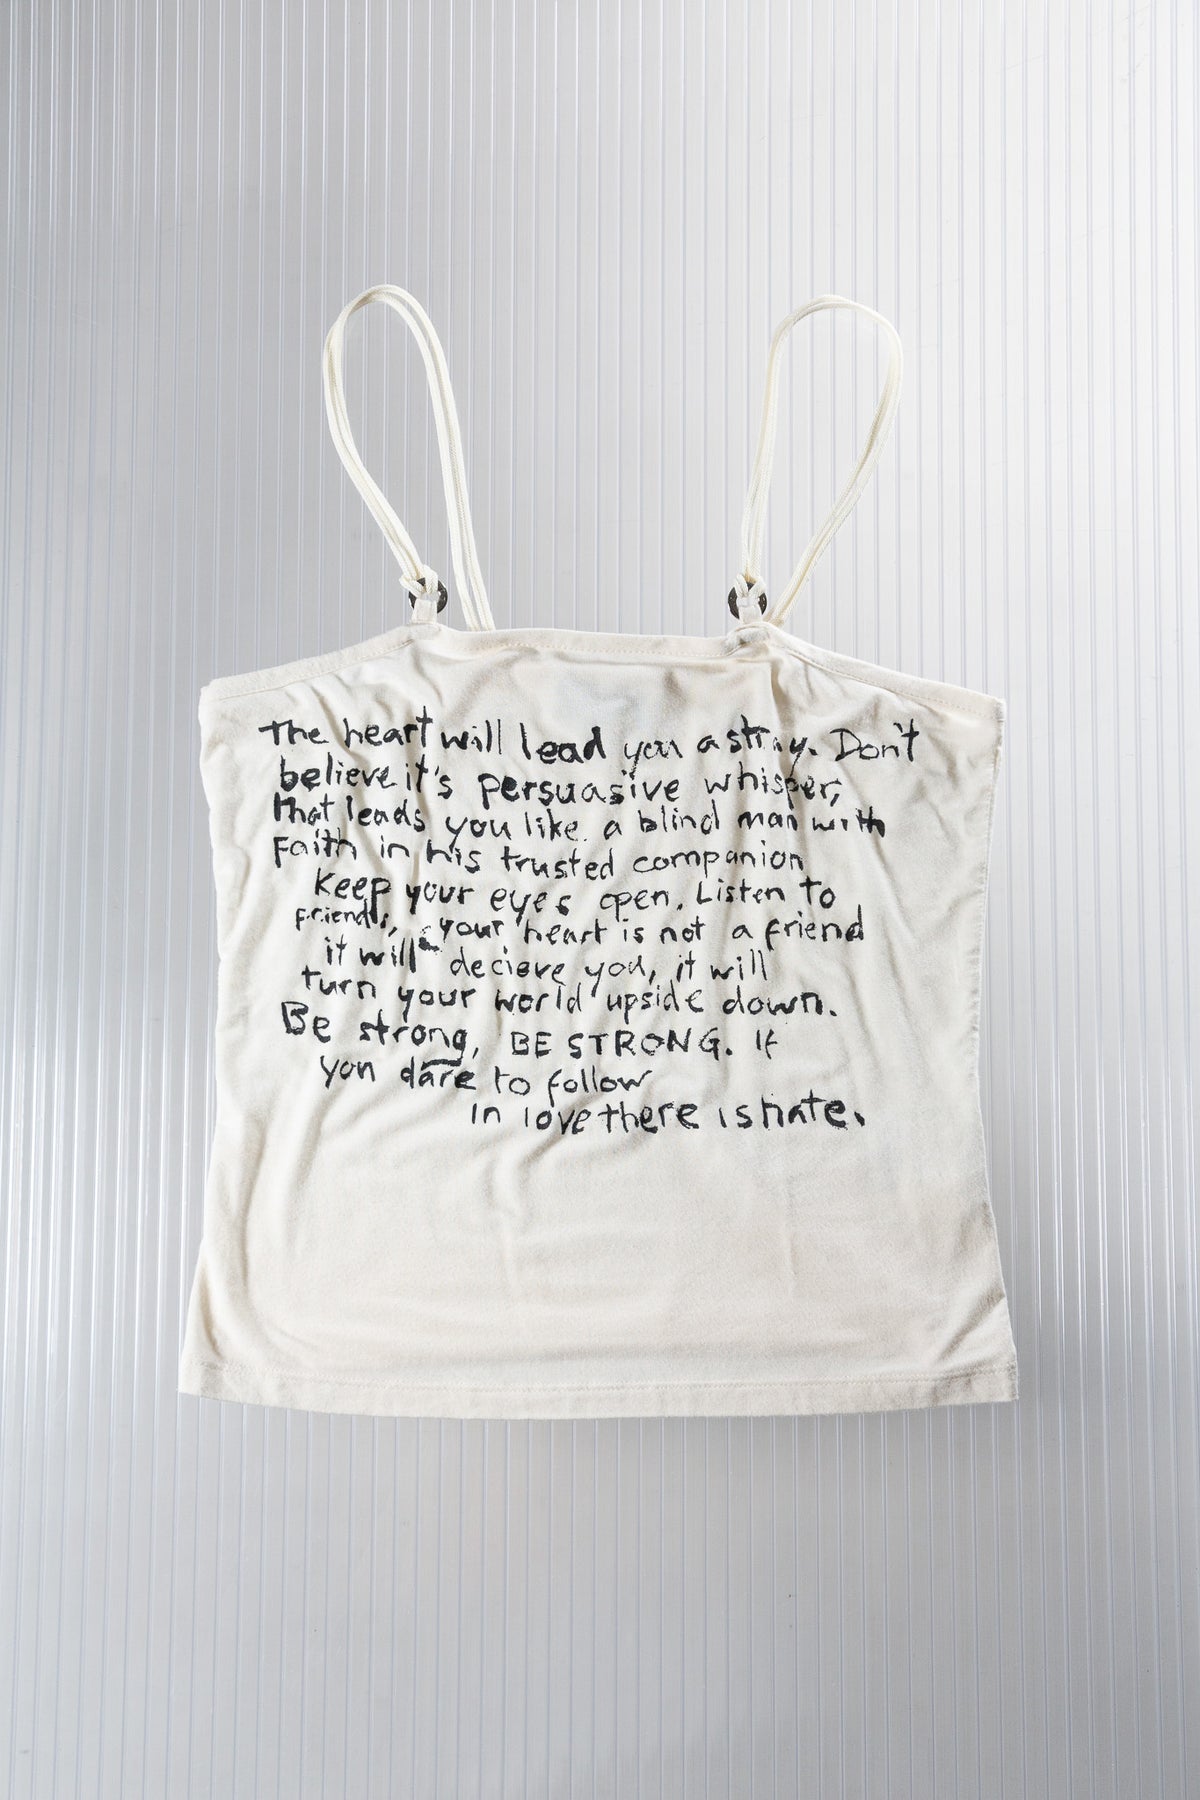 The heart will lead you astray. Don't
believe it's persuasive whisper,
that leads you like a blind man with
Faith in his trusted companion
Keep your eyes open. Listen to
friends, your heart is not a friend
it will decieve you, it will
turn your world upside down.
Be strong, BE STRONG. If
you dare to follow
in love there is hate.